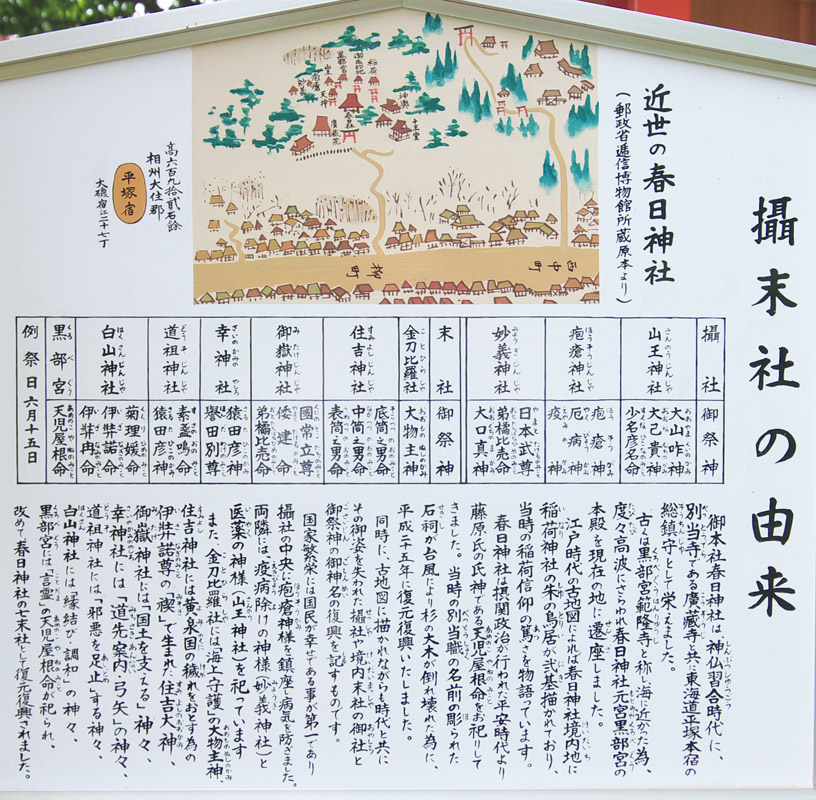 攝末社の由来
近世の春日神社
（郵政省逓信博物館所蔵原本より）
稲荷
御朱印地
黒部宮
山王
天神
妙義
春日社
神輿
十王堂
廣蔵院
高六百九拾貳石餘
相州大住郡
平塚宿
大磯宿江二十七丁
攝社
御祭神
山王神社
さんのうじんじゃ
大山咋神
大己貴神
少名彦名命
疱瘡神社
ほうそうじんじゃ
疱瘡神
厄病神
疫の神
妙義神社
みょうぎじんじゃ
日本武尊
弟橘比売命
大口真神
末社
御祭神
金刀比羅社
ことひらしゃ
大物主神
住吉神社
すみよしじんじゃ
底筒之男命
中筒之男命
表筒之男命
御嶽神社
みたけじんじゃ
國常立尊
倭建命
弟橘比売命
幸神社
さいのかみのやしろ
猿田彦神
譽田別尊
道祖神社
どうそじんじゃ
素盞鳴命
猿田彦神
白山神社
はくさんじんじゃ
菊理媛命
伊弉諾命
伊弉冉命
黒部宮
くろべぐう
天児屋根命
例祭日六月十五日
御本社春日神社は、神仏習合時代に、
別当寺である廣蔵寺と共に東海道平塚本宿の
総鎮守として栄えました。
古くは黒部宮範隆寺と称し海に近かった為、
度々高波にさらわれ春日神社元宮黒部宮の
本殿を現在の地に遷座しました。
江戸時代の古地図によれば春日神社境内地に
稲荷神社の朱の鳥居が弐基描かれており、
当時の稲荷信仰の篤さを物語っています。
春日神社は摂関政治が行われた平安時代より
藤原氏の氏神である天児屋根命をお祀りして
きました。当時の別当職の名前の彫られた
石祠が台風により杉の大木が倒れ壊れた為に、
平成二十五年に復元復興いたしました。
同時に、古地図に描かれながらも時代と共に
その御姿を失われた攝社や境内末社の御社と
御祭神の御神名の復興を記すものです。
国家繁栄には国民が幸せである事が第一であり
攝社の中央に疱瘡神様を鎮座し病気を防ぎました。
両隣には、疫病除けの神様（妙義神社）と
医薬の神様（山王神社）を祀っています
また、金刀比羅社には「海上守護」の大物主神、
住吉神社には黄泉国の穢れをおとす為の
伊弉諾尊の「禊」で生まれた住吉大神、
御嶽神社には「国土を支える」神々、
幸神社には「道先案内・弓矢」の神々、
道祖神社には、「邪悪を足止」する神々、
白山神社には「縁結び・調和」の神々、
黒部宮には「言霊」の天児屋根命が祀られ、
改めて春日神社の七末社として復元復興されました。